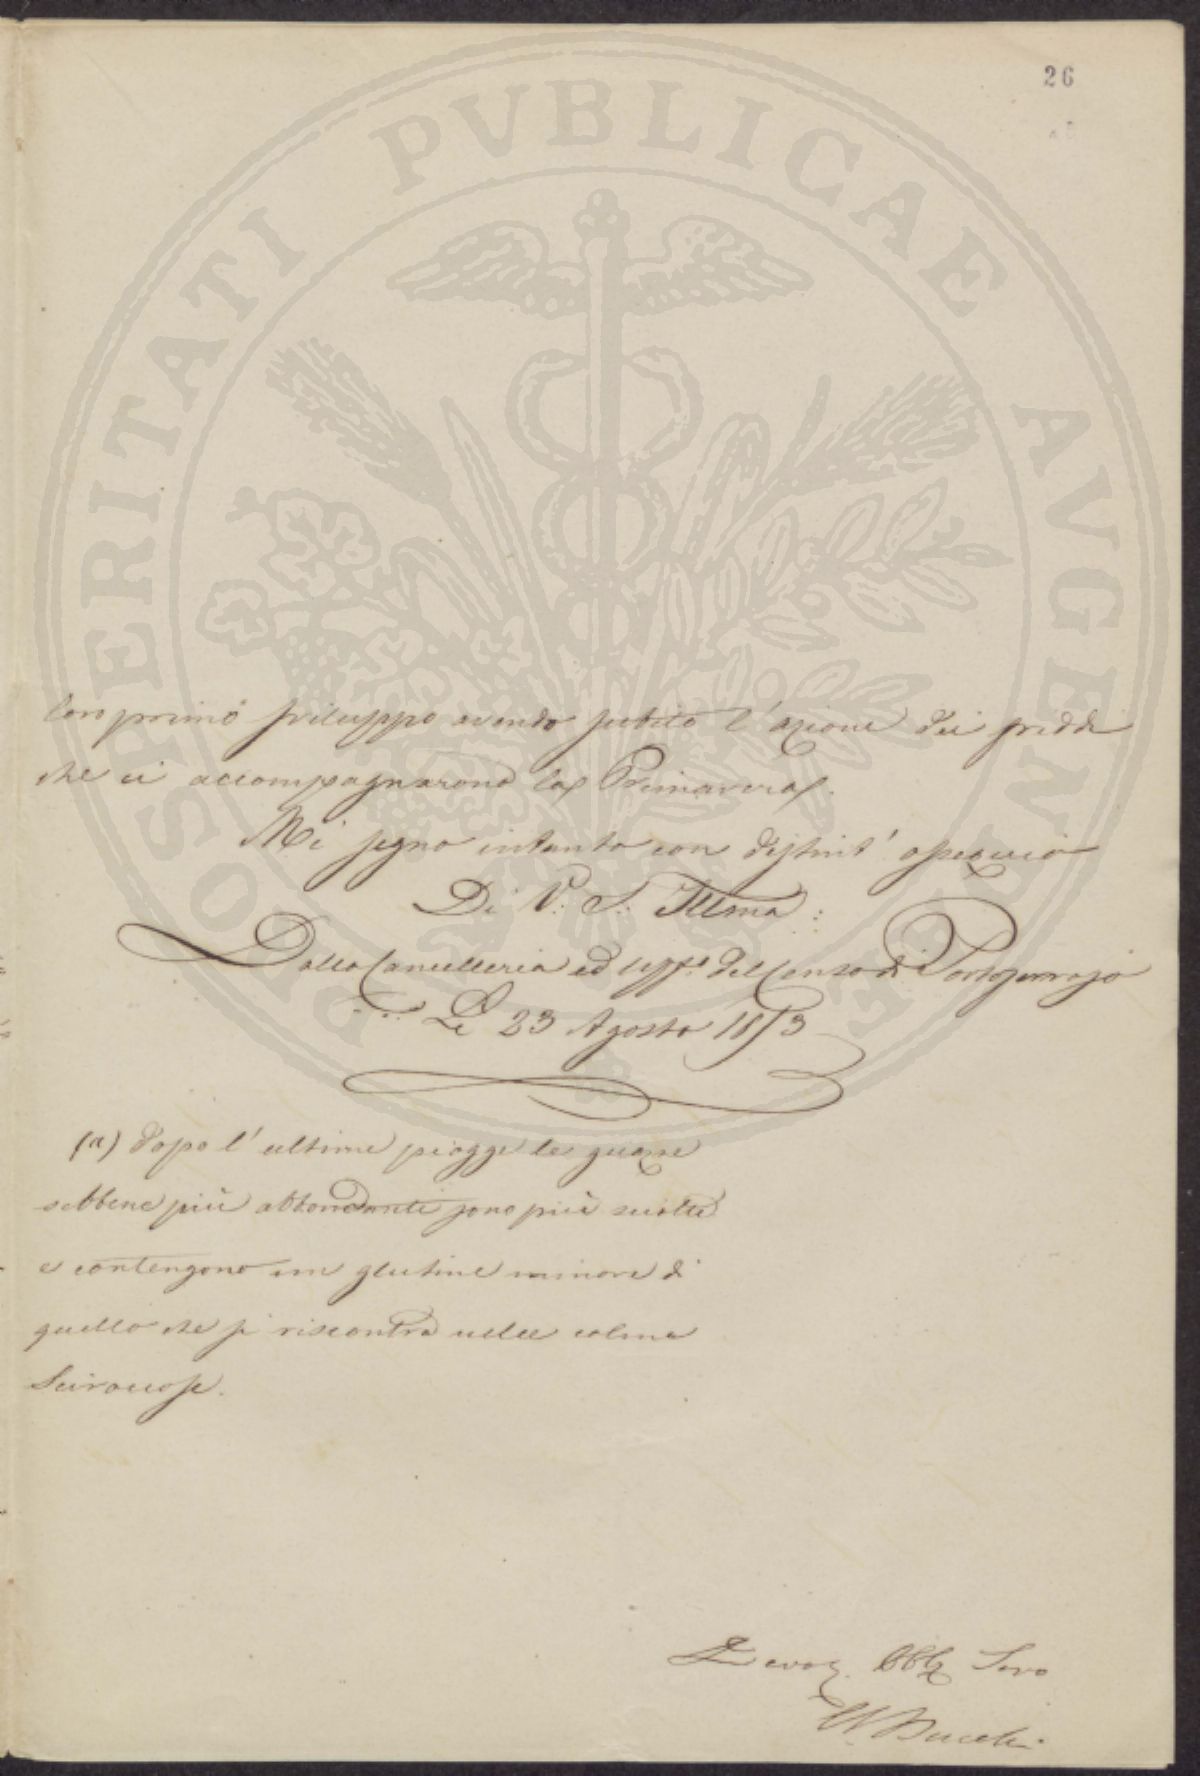 26
PROSPERITATI PVBLICAE AVGENDAE
loro primo sviluppo avendo subito l'azione dei freddi
che ci accompagnarono la Primavera.
Mi segno intanto con distint' ossequio
Di V: S: Illma:
Dalla Cancelleria ed Uffo del Censo di Portogruaro
Li 23 Agosto 1873
(a) dopo l'ultime piogge le guazze
sebbene più abbondanti sono più sciolte
e contengono un glutine minore di
quello che si riscontra nelle calme
Sciroccose.
Devoz. Obb Servo